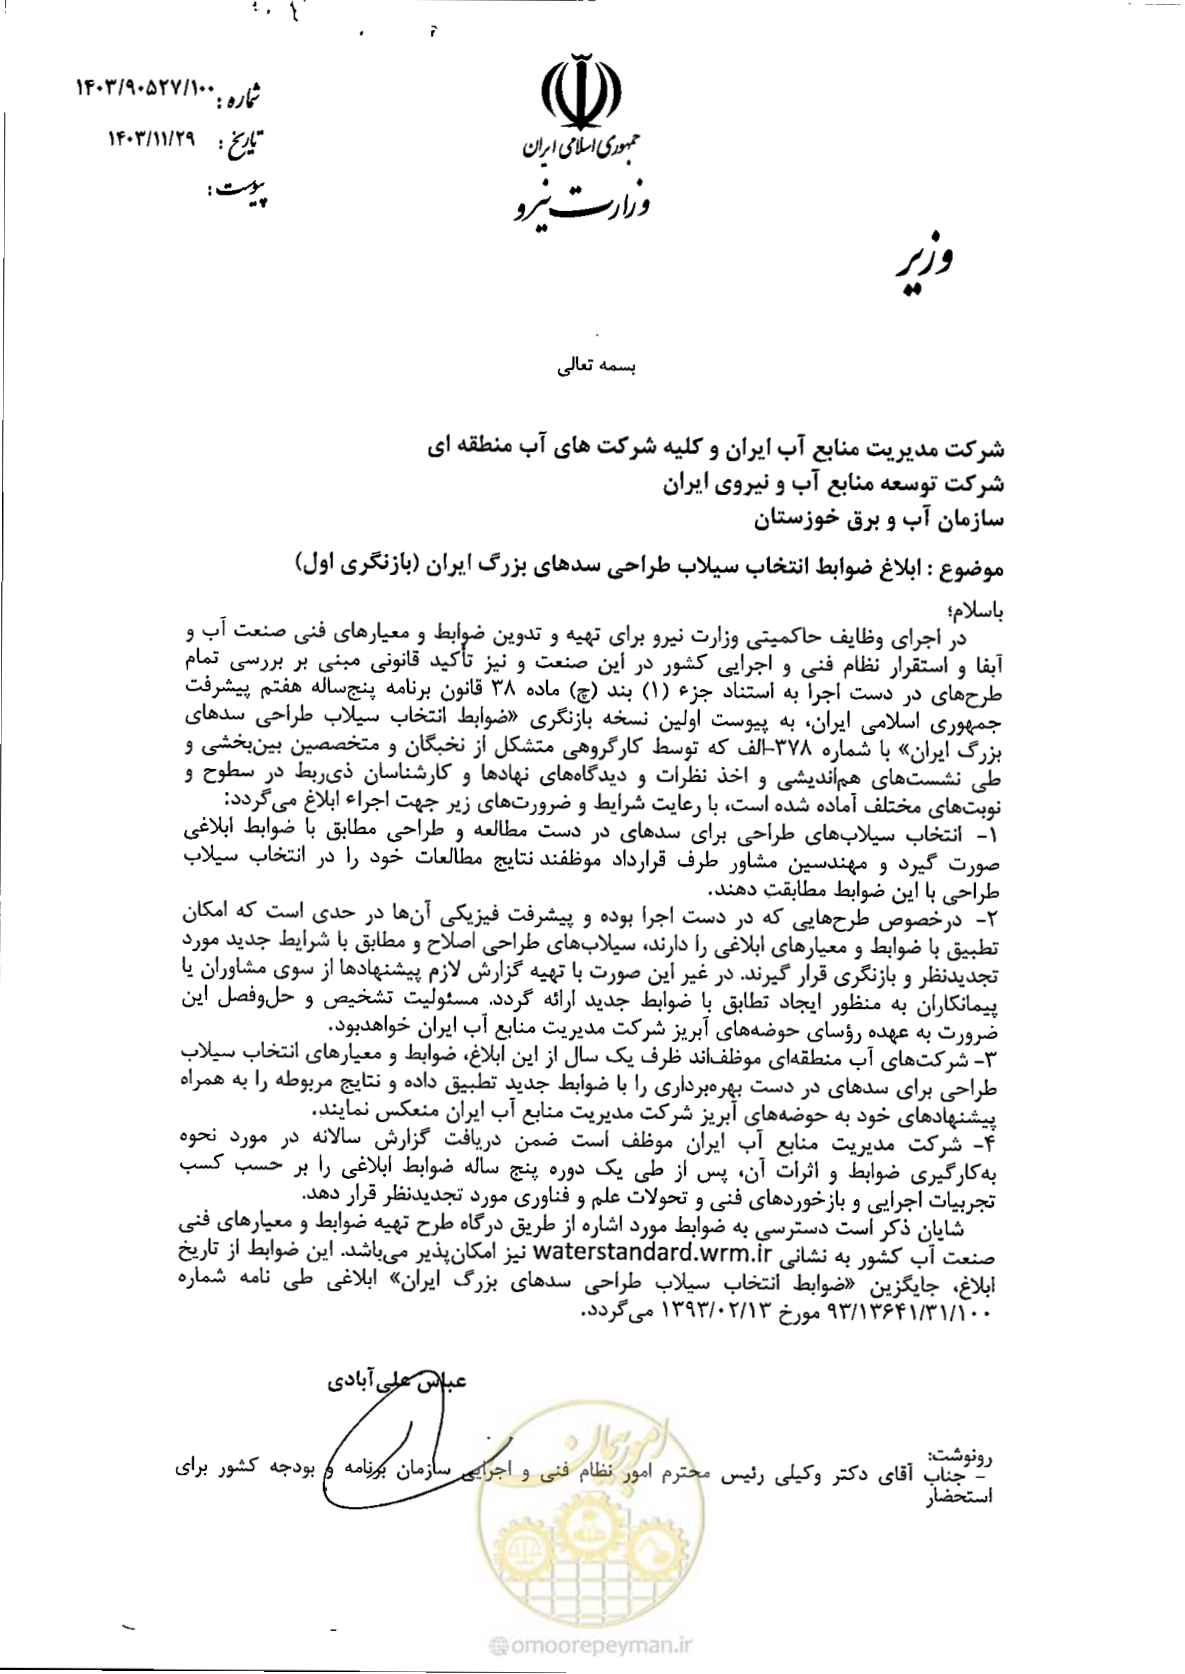 شماره: ۱۴۰۳/۹۰۵۲۷/۱۰۰
تاریخ: ۱۴۰۳/۱۱/۲۹
پیوست:
جمهوری اسلامی ایران
وزارت نیرو
وزیر
بسمه تعالی
شرکت مدیریت منابع آب ایران و کلیه شرکت های آب منطقه ای
شرکت توسعه منابع آب و نیروی ایران
سازمان آب و برق خوزستان
موضوع : ابلاغ ضوابط انتخاب سیلاب طراحی سدهای بزرگ ایران (بازنگری اول)
باسلام؛
در اجرای وظایف حاکمیتی وزارت نیرو برای تهیه و تدوین ضوابط و معیارهای فنی صنعت آب و
آبفا و استقرار نظام فنی و اجرایی کشور در این صنعت و نیز تأکید قانونی مبنی بر بررسی تمام
طرح‌های در دست اجرا به استناد جزء (۱) بند (چ) ماده ۳۸ قانون برنامه پنج‌ساله هفتم پیشرفت
جمهوری اسلامی ایران، به پیوست اولین نسخه بازنگری «ضوابط انتخاب سیلاب طراحی سدهای
بزرگ ایران» با شماره ۳۷۸-الف که توسط کارگروهی متشکل از نخبگان و متخصصین بین‌بخشی و
طی نشست‌های هم‌اندیشی و اخذ نظرات و دیدگاه‌های نهادها و کارشناسان ذی‌ربط در سطوح و
نوبت‌های مختلف آماده شده است، با رعایت شرایط و ضرورت‌های زیر جهت اجراء ابلاغ می‌گردد:
۱- انتخاب سیلاب‌های طراحی برای سدهای در دست مطالعه و طراحی مطابق با ضوابط ابلاغی
صورت گیرد و مهندسین مشاور طرف قرارداد موظفند نتایج مطالعات خود را در انتخاب سیلاب
طراحی با این ضوابط مطابقت دهند.
۲- درخصوص طرح‌هایی که در دست اجرا بوده و پیشرفت فیزیکی آن‌ها در حدی است که امکان
تطبیق با ضوابط و معیارهای ابلاغی را دارند، سیلاب‌های طراحی اصلاح و مطابق با شرایط جدید مورد
تجدیدنظر و بازنگری قرار گیرند. در غیر این صورت با تهیه گزارش لازم پیشنهادها از سوی مشاوران یا
پیمانکاران به منظور ایجاد تطابق با ضوابط جدید ارائه گردد. مسئولیت تشخیص و حل‌وفصل این
ضرورت به عهده رؤسای حوضه‌های آبریز شرکت مدیریت منابع آب ایران خواهدبود.
۳- شرکت‌های آب منطقه‌ای موظف‌اند ظرف یک سال از این ابلاغ، ضوابط و معیارهای انتخاب سیلاب
طراحی برای سدهای در دست بهره‌برداری را با ضوابط جدید تطبیق داده و نتایج مربوطه را به همراه
پیشنهادهای خود به حوضه‌های آبریز شرکت مدیریت منابع آب ایران منعکس نمایند.
۴- شرکت مدیریت منابع آب ایران موظف است ضمن دریافت گزارش سالانه در مورد نحوه
به‌کارگیری ضوابط و اثرات آن، پس از طی یک دوره پنج ساله ضوابط ابلاغی را بر حسب کسب
تجربیات اجرایی و بازخوردهای فنی و تحولات علم و فناوری مورد تجدیدنظر قرار دهد.
شایان ذکر است دسترسی به ضوابط مورد اشاره از طریق درگاه طرح تهیه ضوابط و معیارهای فنی
صنعت آب کشور به نشانی waterstandard.wrm.ir نیز امکان‌پذیر می‌باشد. این ضوابط از تاریخ
ابلاغ، جایگزین «ضوابط انتخاب سیلاب طراحی سدهای بزرگ ایران» ابلاغی طی نامه شماره
۹۳/۱۳۶۴۱/۳۱/۱۰۰ مورخ ۱۳۹۳/۰۲/۱۳ می‌گردد.
عباس علی‌آبادی
رونوشت:
- جناب آقای دکتر وکیلی رئیس محترم امور نظام فنی و اجرایی سازمان برنامه و بودجه کشور برای
استحضار
امور پیمان
@omoorepeyman.ir